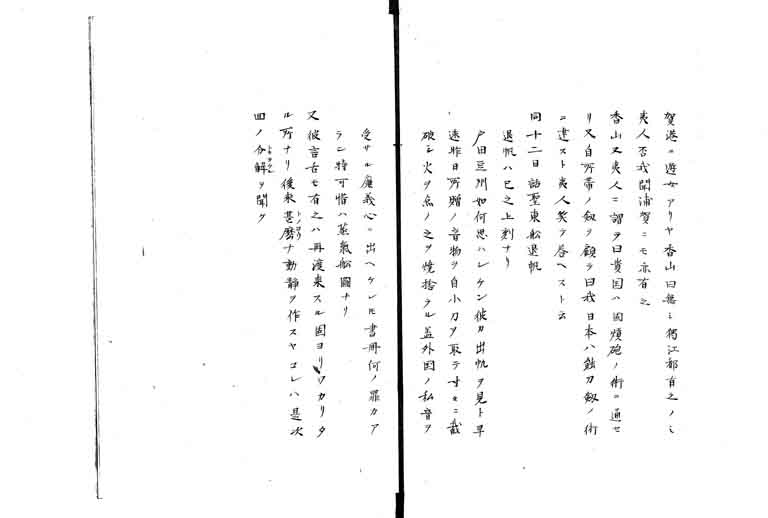 賀港ニ遊女アリヤ香山曰無シ獨江都有之ノミ
夷人否我聞浦賀ニモ亦有之
香山又夷人ニ謂ヲ曰貴国ハ因煩砲ノ術ニ通セ
リ又自所帯ノ劔ヲ顧ラ曰我日本ハ銃刀劔ノ術
ニ達スト夷人笑ラ答ヘスト云
同十二日話聖東船退帆
退帆ハ巳之上刻ナリ
戸田豆州如何思ハレケン彼カ出帆ヲ見ト早
速昨日所贈ノ音物ヲ自小刀ヲ取テ寸々ニ截
破シ火ヲ点ノ之ヲ焼捨ラル蓋外国ノ私音ヲ
受サル廉義心ニ出ヘケレ𪜈書冊何ノ罪カア
ラン特可惜ハ蒸氣船圖ナリ
又彼言舌モ有之ハ再渡来スル国ヨリワカリタ
ル所ナリ後来甚麼ナ動静ヲ作スヤコレハ是次
トノヨウ
回ノ分解ヲ聞ク